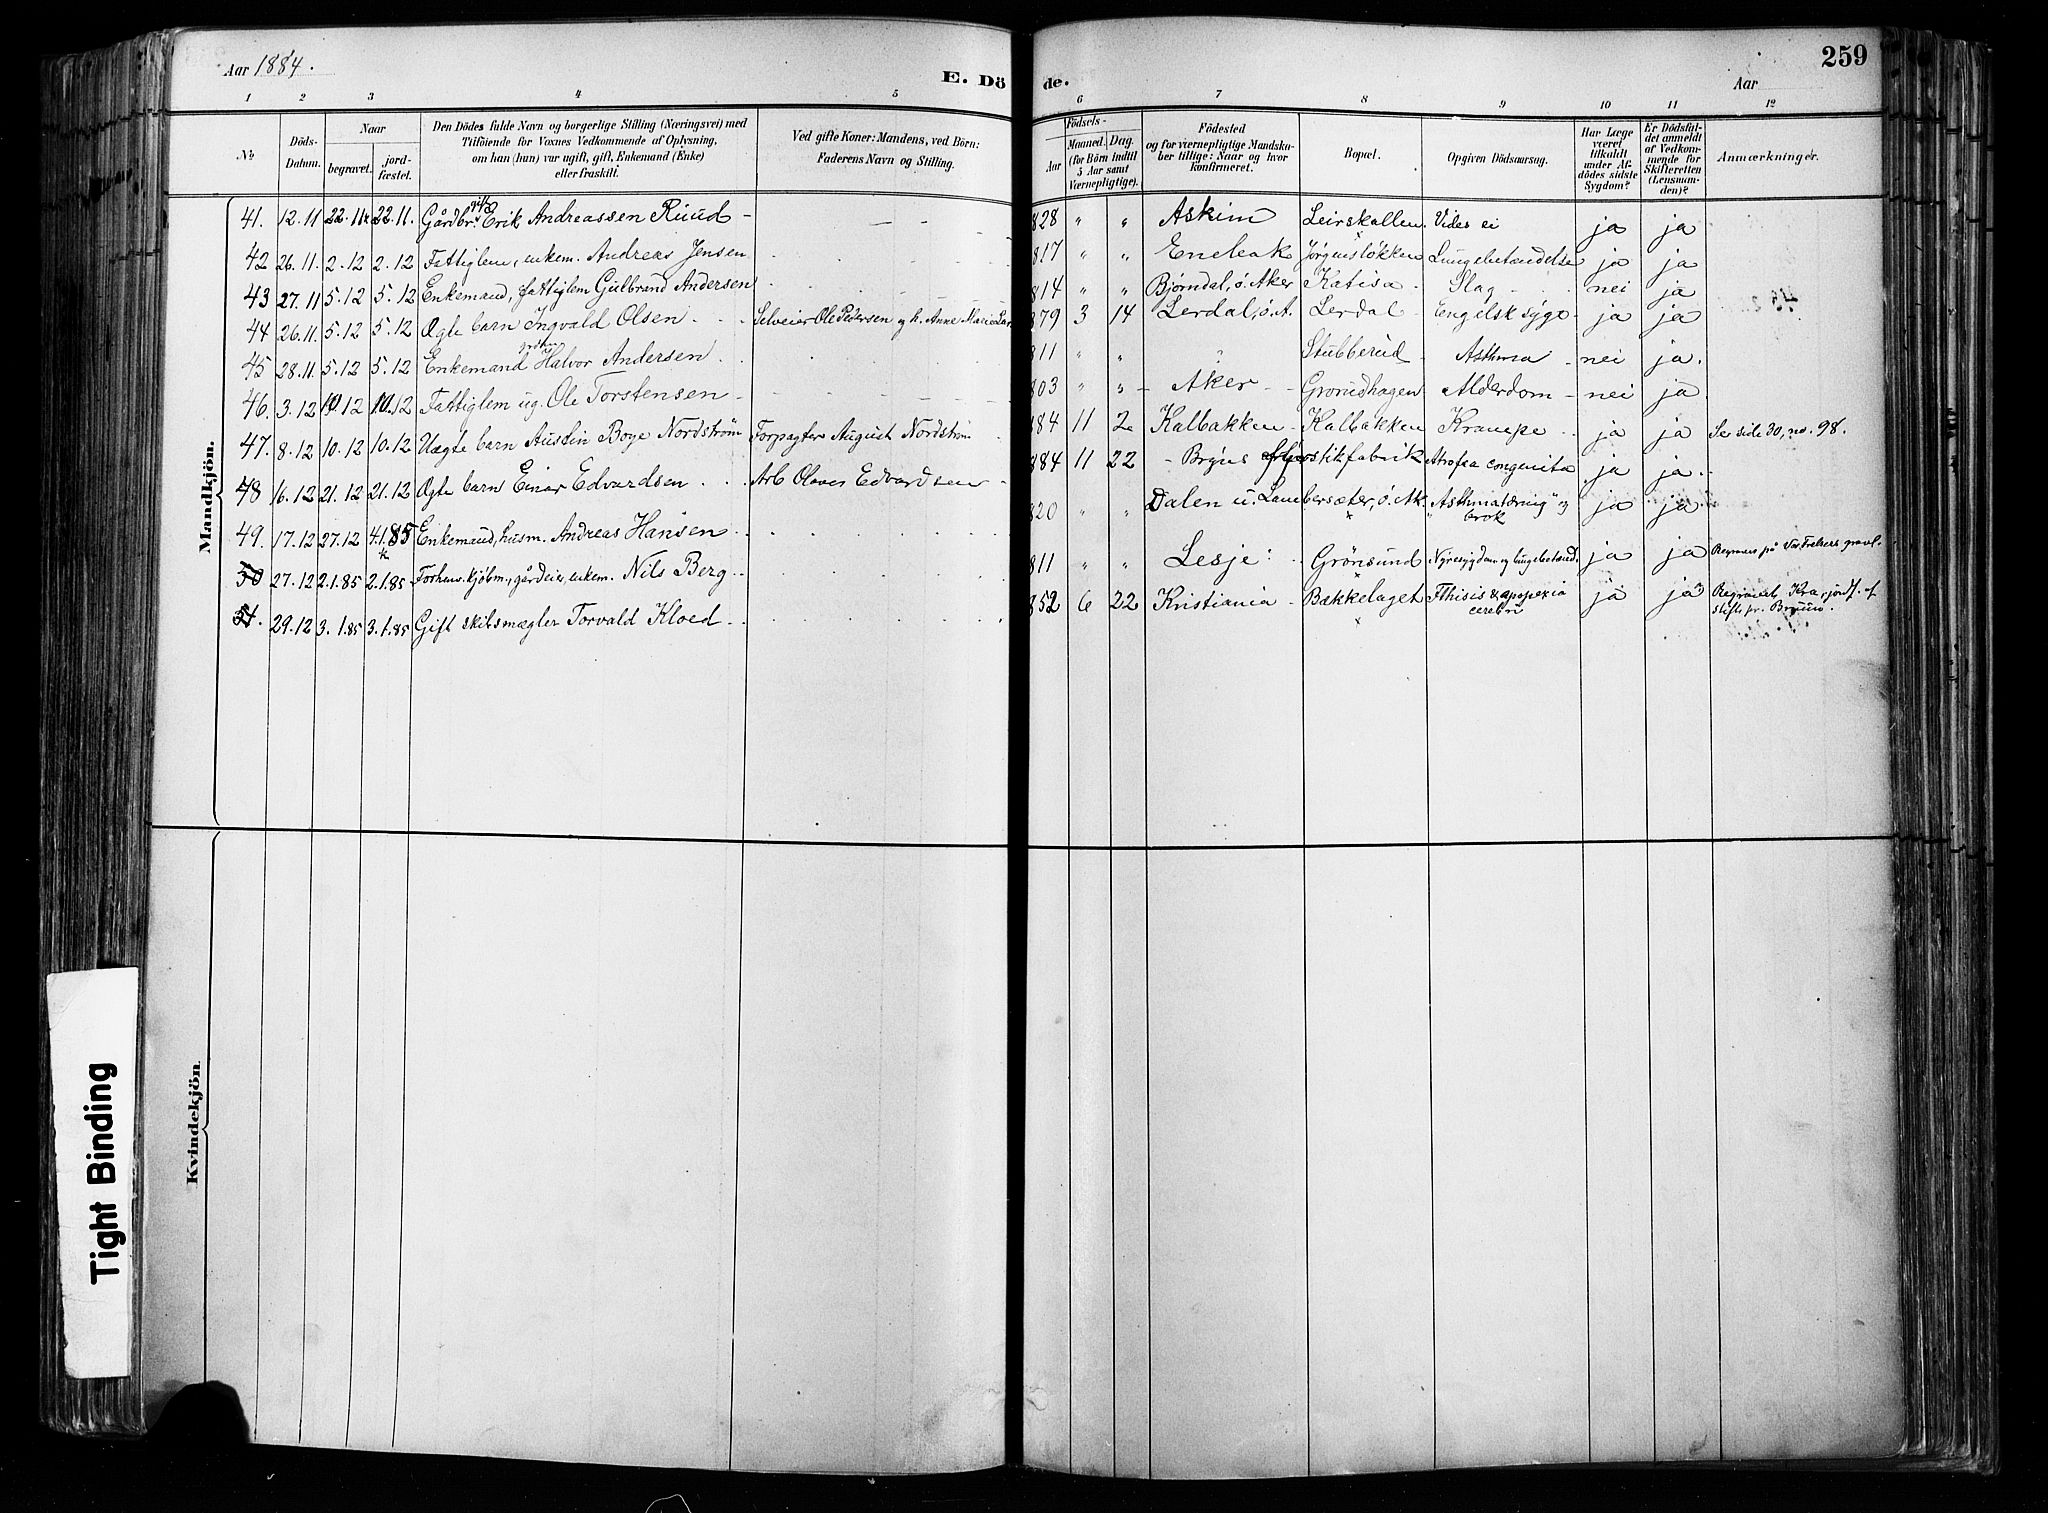 Aar 1884.
E. Dö
de.
Aar
259
1 2 3 4 5 6 7 8 9 10 11 12
No
Döds-Datum.
Naar
begravet.
jord-fæstet.
Den Dödes fulde Navn og borgerlige Stilling (Næringsvei) med
Tilföiende for Voxnes Vedkommende af Oplysning,
om han (hun) var ugift, gift, Enkemand (Enke)
eller fraskilt.
Ved gifte Koner: Mandens, ved Börn:
Faderens Navn og Stilling.
Födsels-
Aar
Maaned. Dag.
(for Börn indtil
5 Aar samt
Værnepligtige).
Födested
og for værnepligtige Mandska-
ber tillige: Naar og hvor
konfirmeret.
Bopæl.
Opgiven Dödsaarsag.
Har Læge
været
tilkaldt
under Af-
dödes sidste
Sygdom?
Er Dödsfal-
det anmeldt
af Vedkom-
mende for
Skifteretten
(Lensman-
den)?
Anmærkninger.
Mandkjön.
41. 12.11 22.11 22.11. Gårdbr. Erik Andreassen Ruud 828 " " Askim Leirskallen Vides ei ja ja
42 26.11. 2.12 2.12 Fattiglem, enkem. Andreas Jensen 817 " " Enebak Jørgensløkken Lungebetændelse ja ja
43 27.11 5.12 5.12 Enkemand, fattiglem Gulbrand Andersen 814 " " Bjørndal, ö. Aker Katisa Slag nei ja
44 26.11. 5.12 5.12 Ægte barn Ingvald Olsen Selveier Ole Pedersen og h. Anne Marie 879 3 14 Lerdal, ö. A. Lerdal Engelsk syge ja ja
45 28.11. 5.12 5.12 Enkemand Halvor Andersen 811 " " " Stubberud Asthma nei ja.
46. 3.12 10.12 10.12 Fattiglem ug. Ole Torstensen 803 " " Aker Grorudhagen Alderdom nei ja
47. 8.12 10.12 10.12 Uægte barn Austin Boye Nordström Forpagter August Nordström 884 11 2 Kalbakken Kalbakken Krampe ja ja Se side 30, no. 98.
48 16.12 21.12 21.12 Ægte barn Einar Edvardsen Arb. Olaves Edvardsen 884 11 22 Bryns fyrstikfabrik Atrofia congenita ja ja
49. 17.12 27.12 4.1.85 Enkemand, husm. Andreas Hansen 820 " " Dalen u. Lambersæter, ö. Ak. "Asthmatæring" og brok ja ja
50 27.12 2.1.85 2.1.85 Forhenv. kjöbm., gårdeier, enkem. Nils Berg 811 " " Lesje Grönsund Nyresygdom og lungebetænd. ja ja Begraves på Vor Frelsers gravl.
51. 29.12 3.1.85 3.1.85 Gift skibsmægler Torvald Kloed 852 6 22 Kristiania Bækkelaget Fthisis & apopexia cerebri ja ja Begravet Kra, jordf. af stift. pr. Bruun.
Kvindekjön
Tight Binding